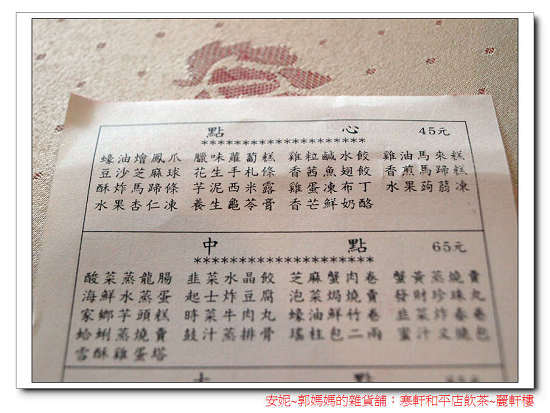 點心 45元
********************
蠔油燴鳳爪 臘味蘿蔔糕 雞粒鹹水餃 雞油馬來糕
豆沙芝麻球 花生手札條 香茜魚翅餃 香煎馬蹄糕
酥炸馬蹄條 芋泥西米露 雞蛋凍布丁 水果蒟蒻凍
水果杏仁凍 養生龜苓膏 香芒鮮奶酪
中點 65元
********************
酸菜蒸龍腸 韭菜水晶餃 芝麻蟹肉卷 蟹黃蒸燒賣
海鮮水蒸蛋 起士炸豆腐 泡菜焗燒賣 發財珍珠丸
家鄉芋頭糕 時菜牛肉丸 蠔油鮮竹卷 韭菜炸春卷
蛤蜊蒸燒賣 鼓汁蒸排骨 瑤柱包二兩 蜜汁叉燒包
雪酥雞蛋塔
安妮~郭媽媽的雜貨舖：寒軒和平店飲茶~麗軒樓